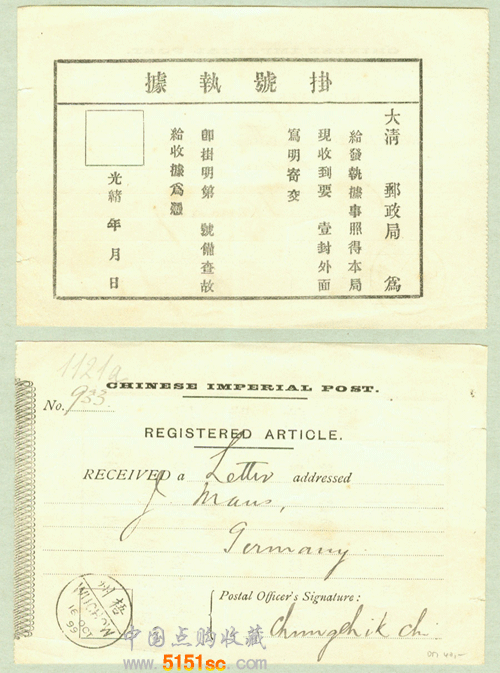 掛號執據
大清 郵政局 為
給發執據事照得本局
現收到要 壹封外面
寫明寄交
即掛明第 號備查故
給收據為憑
光緒 年 月 日
1121a
CHINESE IMPERIAL POST.
No. 933
REGISTERED ARTICLE.
RECEIVED a Letter addressed
J. Maus,
Germany.
梧州
WUCHOW
31 OCT 99
Postal Officer's Signature:
Chung Chik Chi
中国点购收藏
www.5151sc.com